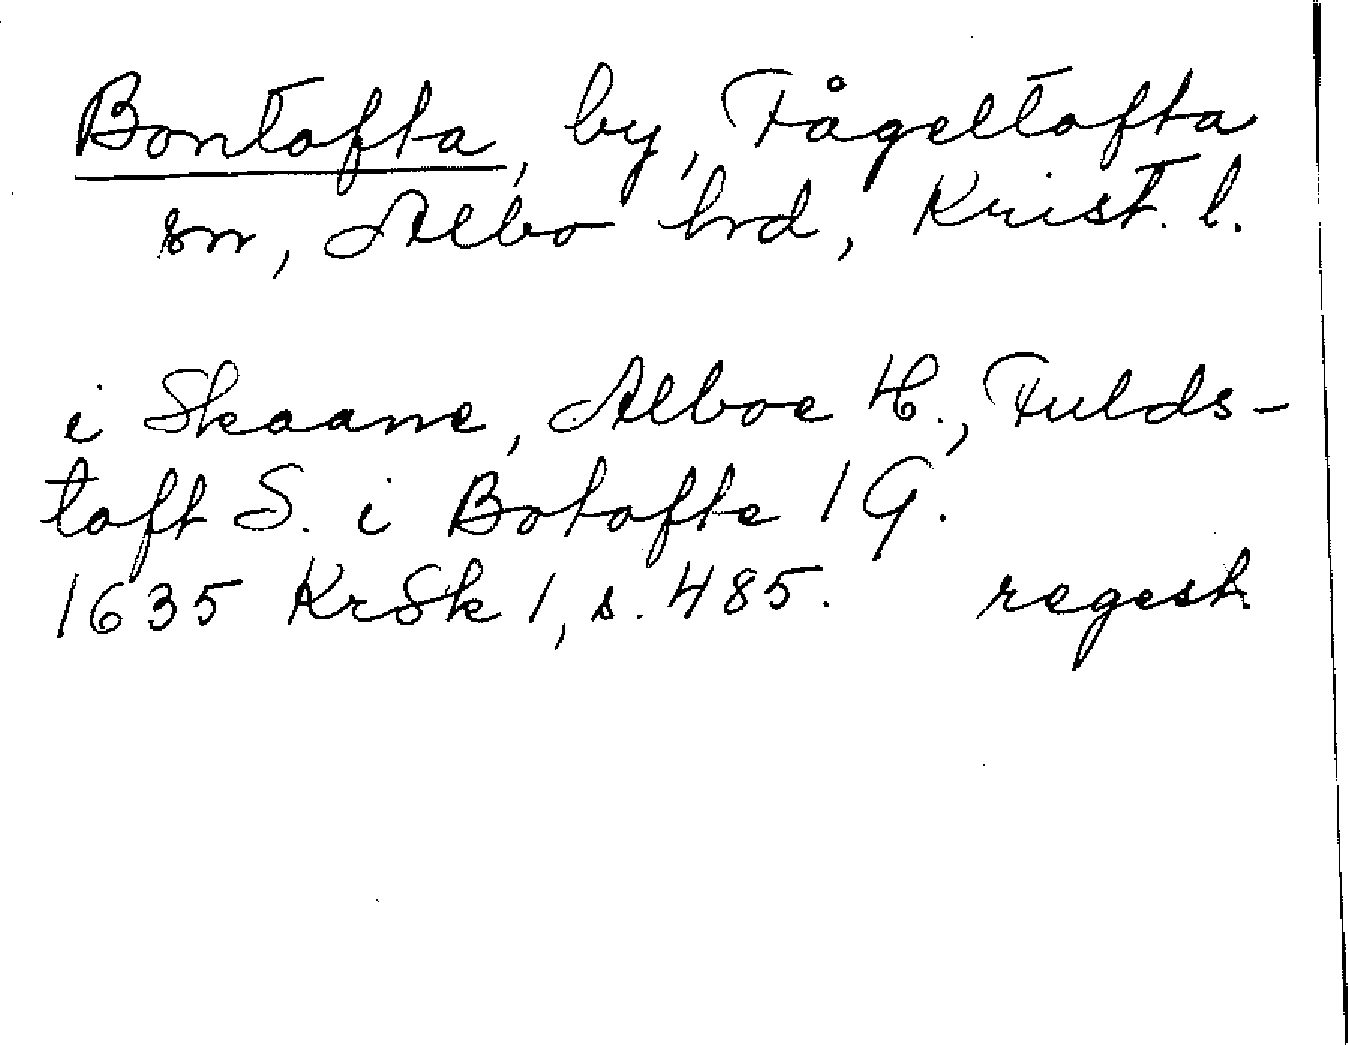 Bontofta, by, Fågeltofta
sn, Albo hrd, Krist. l.
i Skaane, Alboe H., Fulds-
toft S. i Botofte 1 G.
1635 KrSk 1, s. 485. regest.